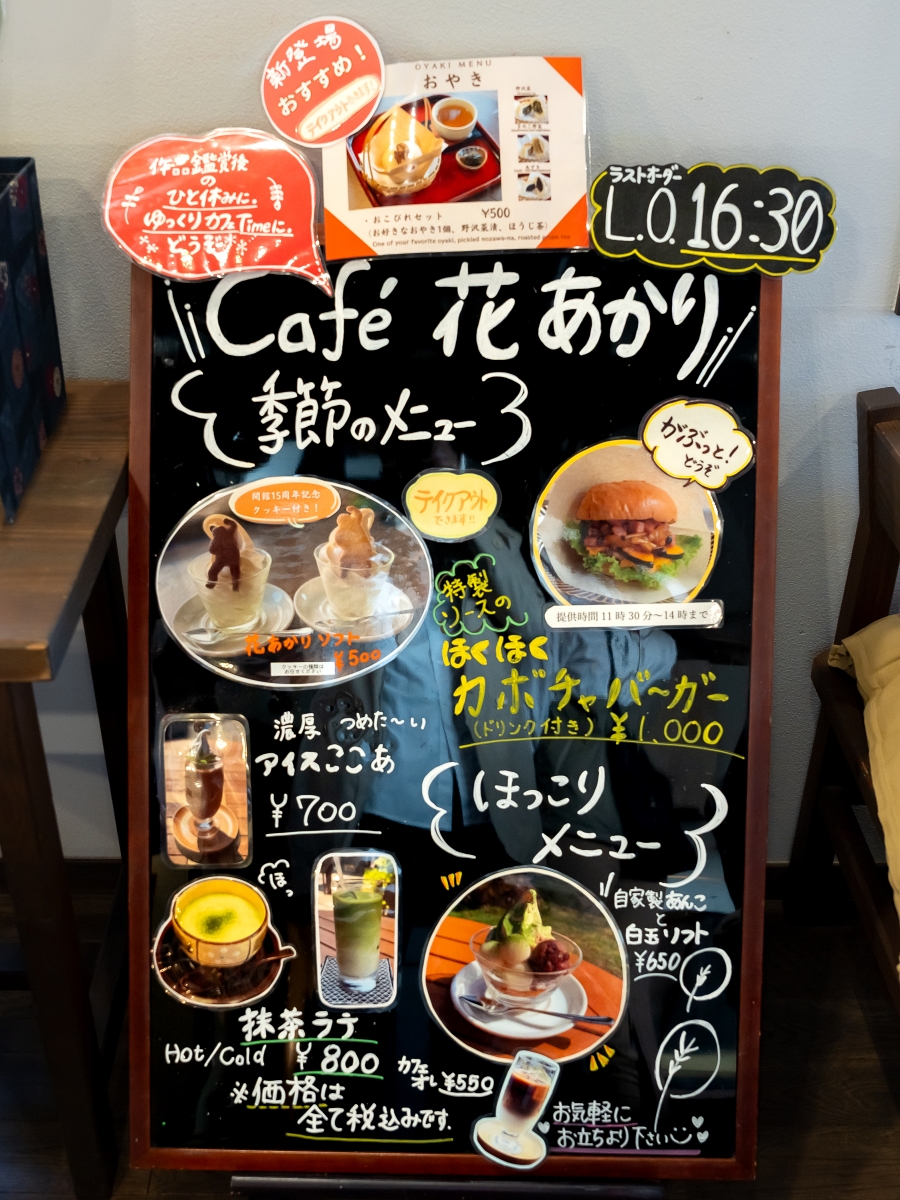 新登場
おすすめ！
テイクアウトできます!
OYAKI MENU
おやき
野沢菜
・おこびれセット ¥500
（お好きなおやき1個、野沢菜漬、ほうじ茶）
One of your favorite oyaki, pickled nozawa-na, roasted green tea
作品鑑賞後
の
ひと休みに。
ゆっくりカフェTimeに。
どうぞ
ラストオーダー
L.O.16:30
Café 花あかり
季節のメニュー
開館15周年記念
クッキー付き！
花あかりソフト
¥500
クッキーの種類は
お任せください
テイクアウト
できます!!
がぶっと！
どうぞ
提供時間 11時30分〜14時まで
特製
ソースの
ほくほく
カボチャバ〜ガー
（ドリンク付き）¥1,000
濃厚 つめた〜い
アイスここあ
¥700
ほっこり
メニュー
ほっ
自家製あんこ
と
白玉ソフト
¥650
抹茶ラテ
Hot/Cold ¥800
カフェ
オレ ¥550
※価格は
全て税込みです.
お気軽に
お立ちより下さい